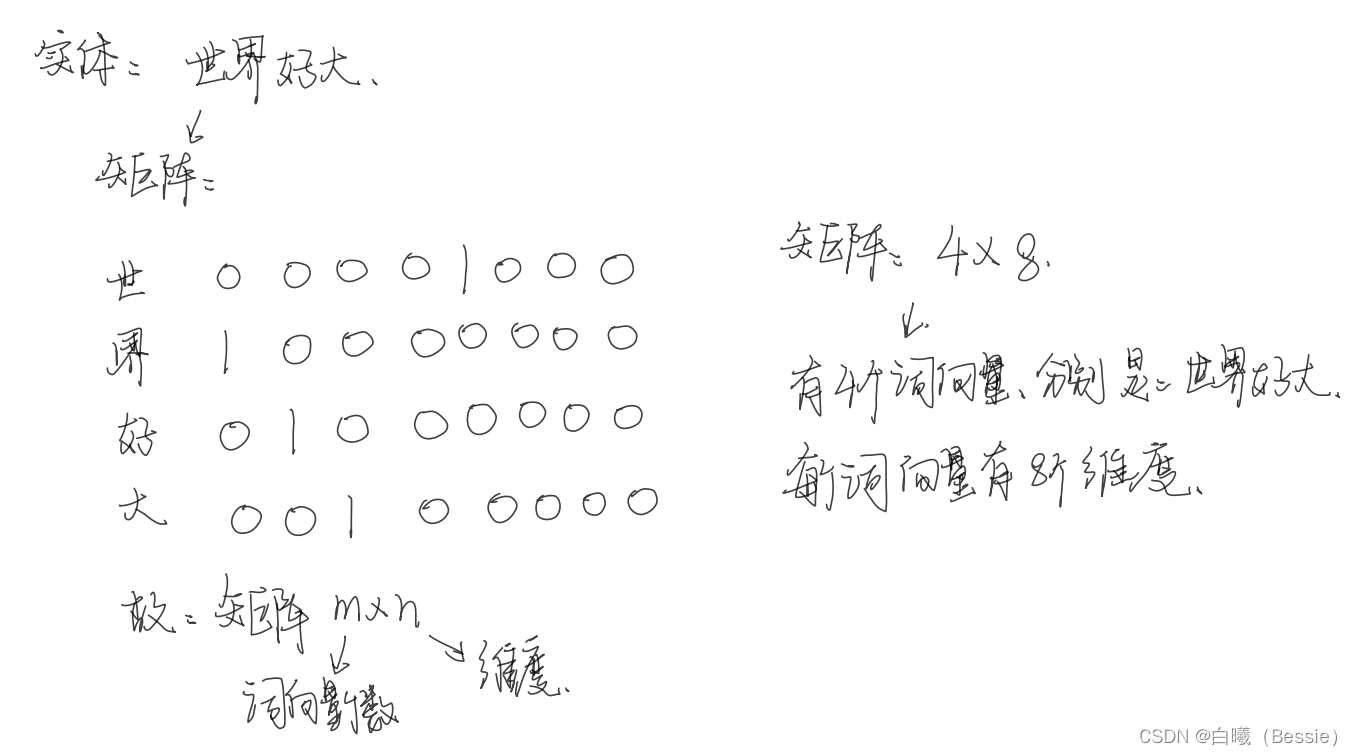 实体: 世界好大.
矩阵:
世 0 0 0 0 1 0 0 0
界 1 0 0 0 0 0 0 0
好 0 1 0 0 0 0 0 0
大 0 0 1 0 0 0 0 0
故: 矩阵 m×n
词向量个数
维度.
矩阵: 4×8.
有4个词向量、分别是: 世界好大.
每个词向量有8个维度.
CSDN @白曦（Bessie）